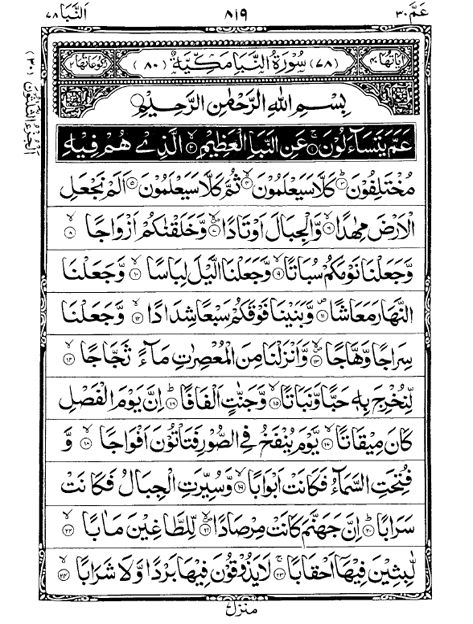 عم ٣٠ ٨١٩ النبا ٧٨
اٰیاتها ٤٠ (٧٨) سُوْرَةُ النَّبَاِ مَكِّیَّةٌ (٨٠) رکوعاتها ٢
بِسْمِ اللّٰهِ الرَّحْمٰنِ الرَّحِیْمِ
عَمَّ یَتَسَآءَلُوْنَ ۝١ عَنِ النَّبَاِ الْعَظِیْمِ ۝٢ الَّذِیْ هُمْ فِیْهِ
مُخْتَلِفُوْنَ ۝٣ كَلَّا سَیَعْلَمُوْنَ ۝٤ ثُمَّ كَلَّا سَیَعْلَمُوْنَ ۝٥ اَلَمْ نَجْعَلِ
الْاَرْضَ مِهٰدًا ۝٦ وَّالْجِبَالَ اَوْتَادًا ۝٧ وَّخَلَقْنٰكُمْ اَزْوَاجًا ۝٨
وَّجَعَلْنَا نَوْمَكُمْ سُبَاتًا ۝٩ وَّجَعَلْنَا الَّیْلَ لِبَاسًا ۝١٠ وَّجَعَلْنَا
النَّهَارَ مَعَاشًا ۝١١ وَّبَنَیْنَا فَوْقَكُمْ سَبْعًا شِدَادًا ۝١٢ وَّجَعَلْنَا
سِرَاجًا وَّهَّاجًا ۝١٣ وَّاَنْزَلْنَا مِنَ الْمُعْصِرٰتِ مَآءً ثَجَّاجًا ۝١٤
لِّنُخْرِجَ بِهٖ حَبًّا وَّنَبَاتًا ۝١٥ وَّجَنّٰتٍ اَلْفَافًا ۝١٦ اِنَّ یَوْمَ الْفَصْلِ
كَانَ مِیْقَاتًا ۝١٧ یَّوْمَ یُنْفَخُ فِی الصُّوْرِ فَتَاْتُوْنَ اَفْوَاجًا ۝١٨ وَّ
فُتِحَتِ السَّمَآءُ فَكَانَتْ اَبْوَابًا ۝١٩ وَّسُیِّرَتِ الْجِبَالُ فَكَانَتْ
سَرَابًا ۝٢٠ اِنَّ جَهَنَّمَ كَانَتْ مِرْصَادًا ۝٢١ لِّلطَّاغِیْنَ مَاٰبًا ۝٢٢
لّٰبِثِیْنَ فِیْهَاۤ اَحْقَابًا ۝٢٣ لَا یَذُوْقُوْنَ فِیْهَا بَرْدًا وَّلَا شَرَابًا ۝٢٤
منزل